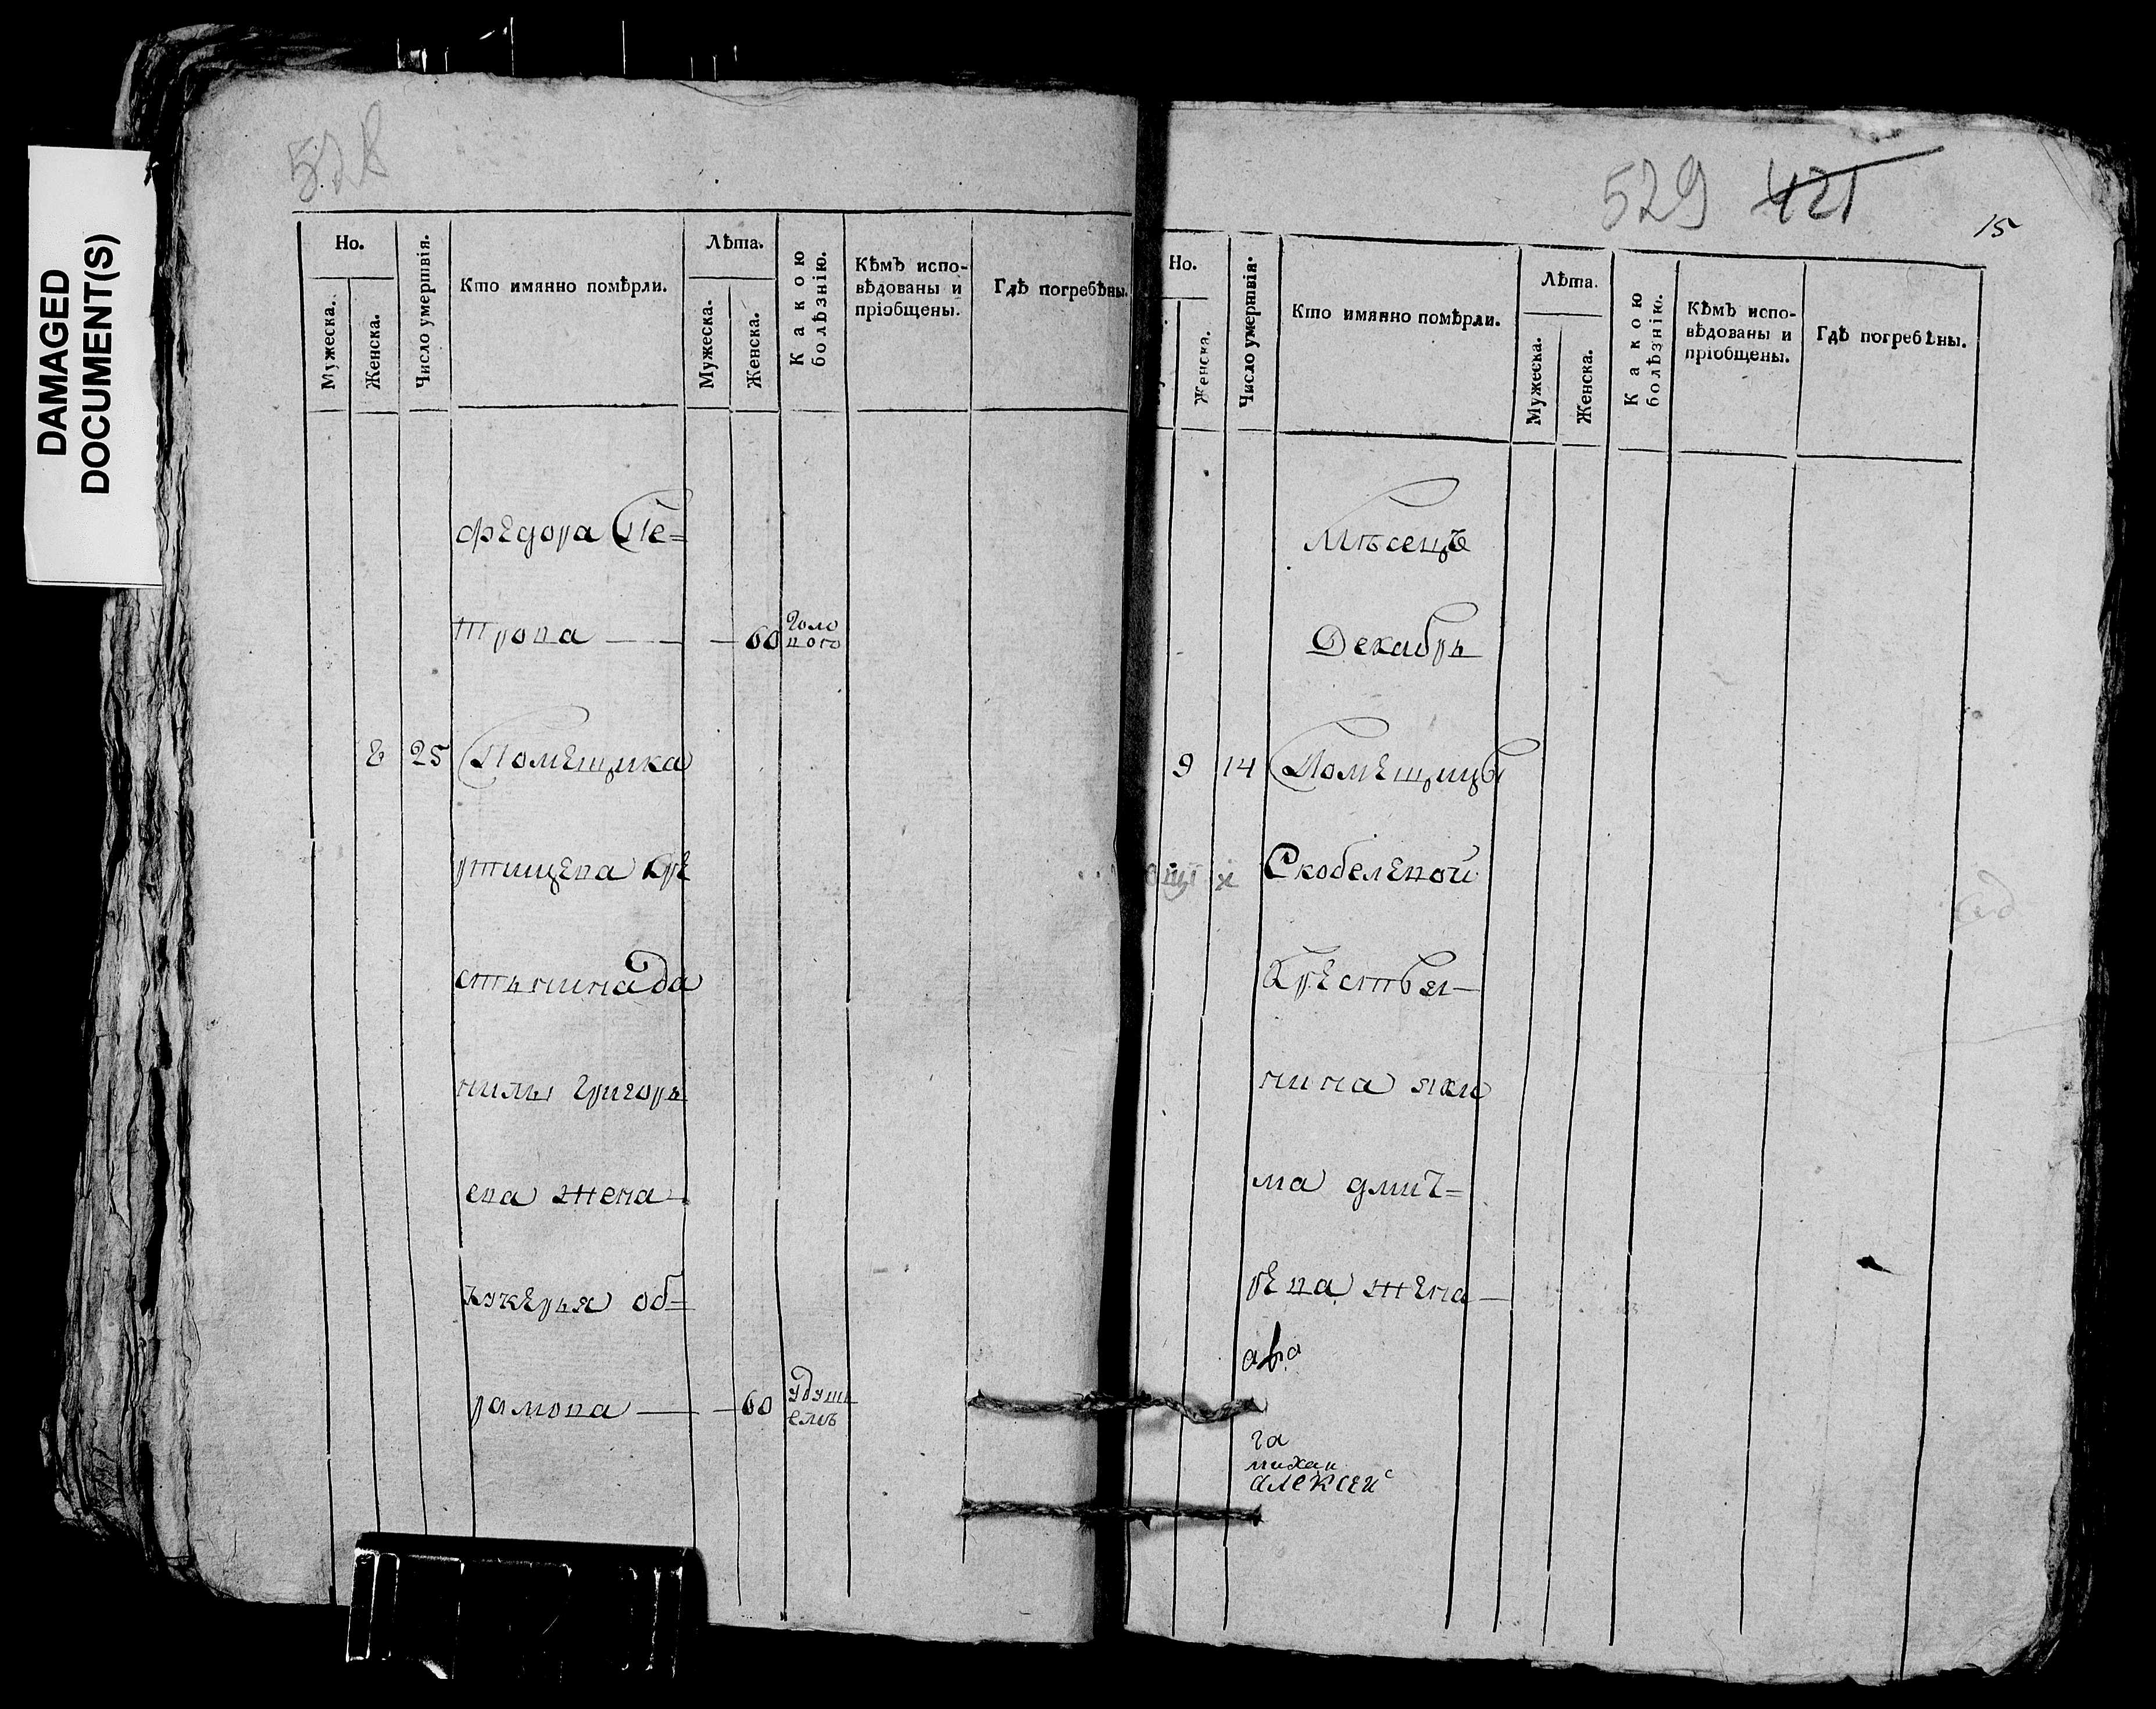 DAMAGED
DOCUMENT(S)
528
Но.
Мужеска.
Женска.
Число умертвія.
Кто имянно помѣрли.
Лѣта.
Мужеска.
Женска.
Какою
болѣзнію.
Кѣмъ испо-
вѣдованы и
пріобщены.
Гдѣ погребѣны.
федора Пе=
трова — — — 60
8 25 Помещика
ртищева кре
стьнина да
нилы григорь
ева жена
лукерья об=
рамова — — 60 удушь
емъ
529 421
15
Но.
Женска.
Число умертвія.
Кто имянно помѣрли.
Лѣта.
Мужеска.
Женска.
Какою
болѣзнію.
Кѣмъ испо-
вѣдованы и
пріобщены.
Гдѣ погребѣны.
Мѣсецъ
Декабрь
9 14 Помещицы
Скобелевой
Крестья—
нина яки
ма дмит=
рева жена —
га
михаи
алексеи